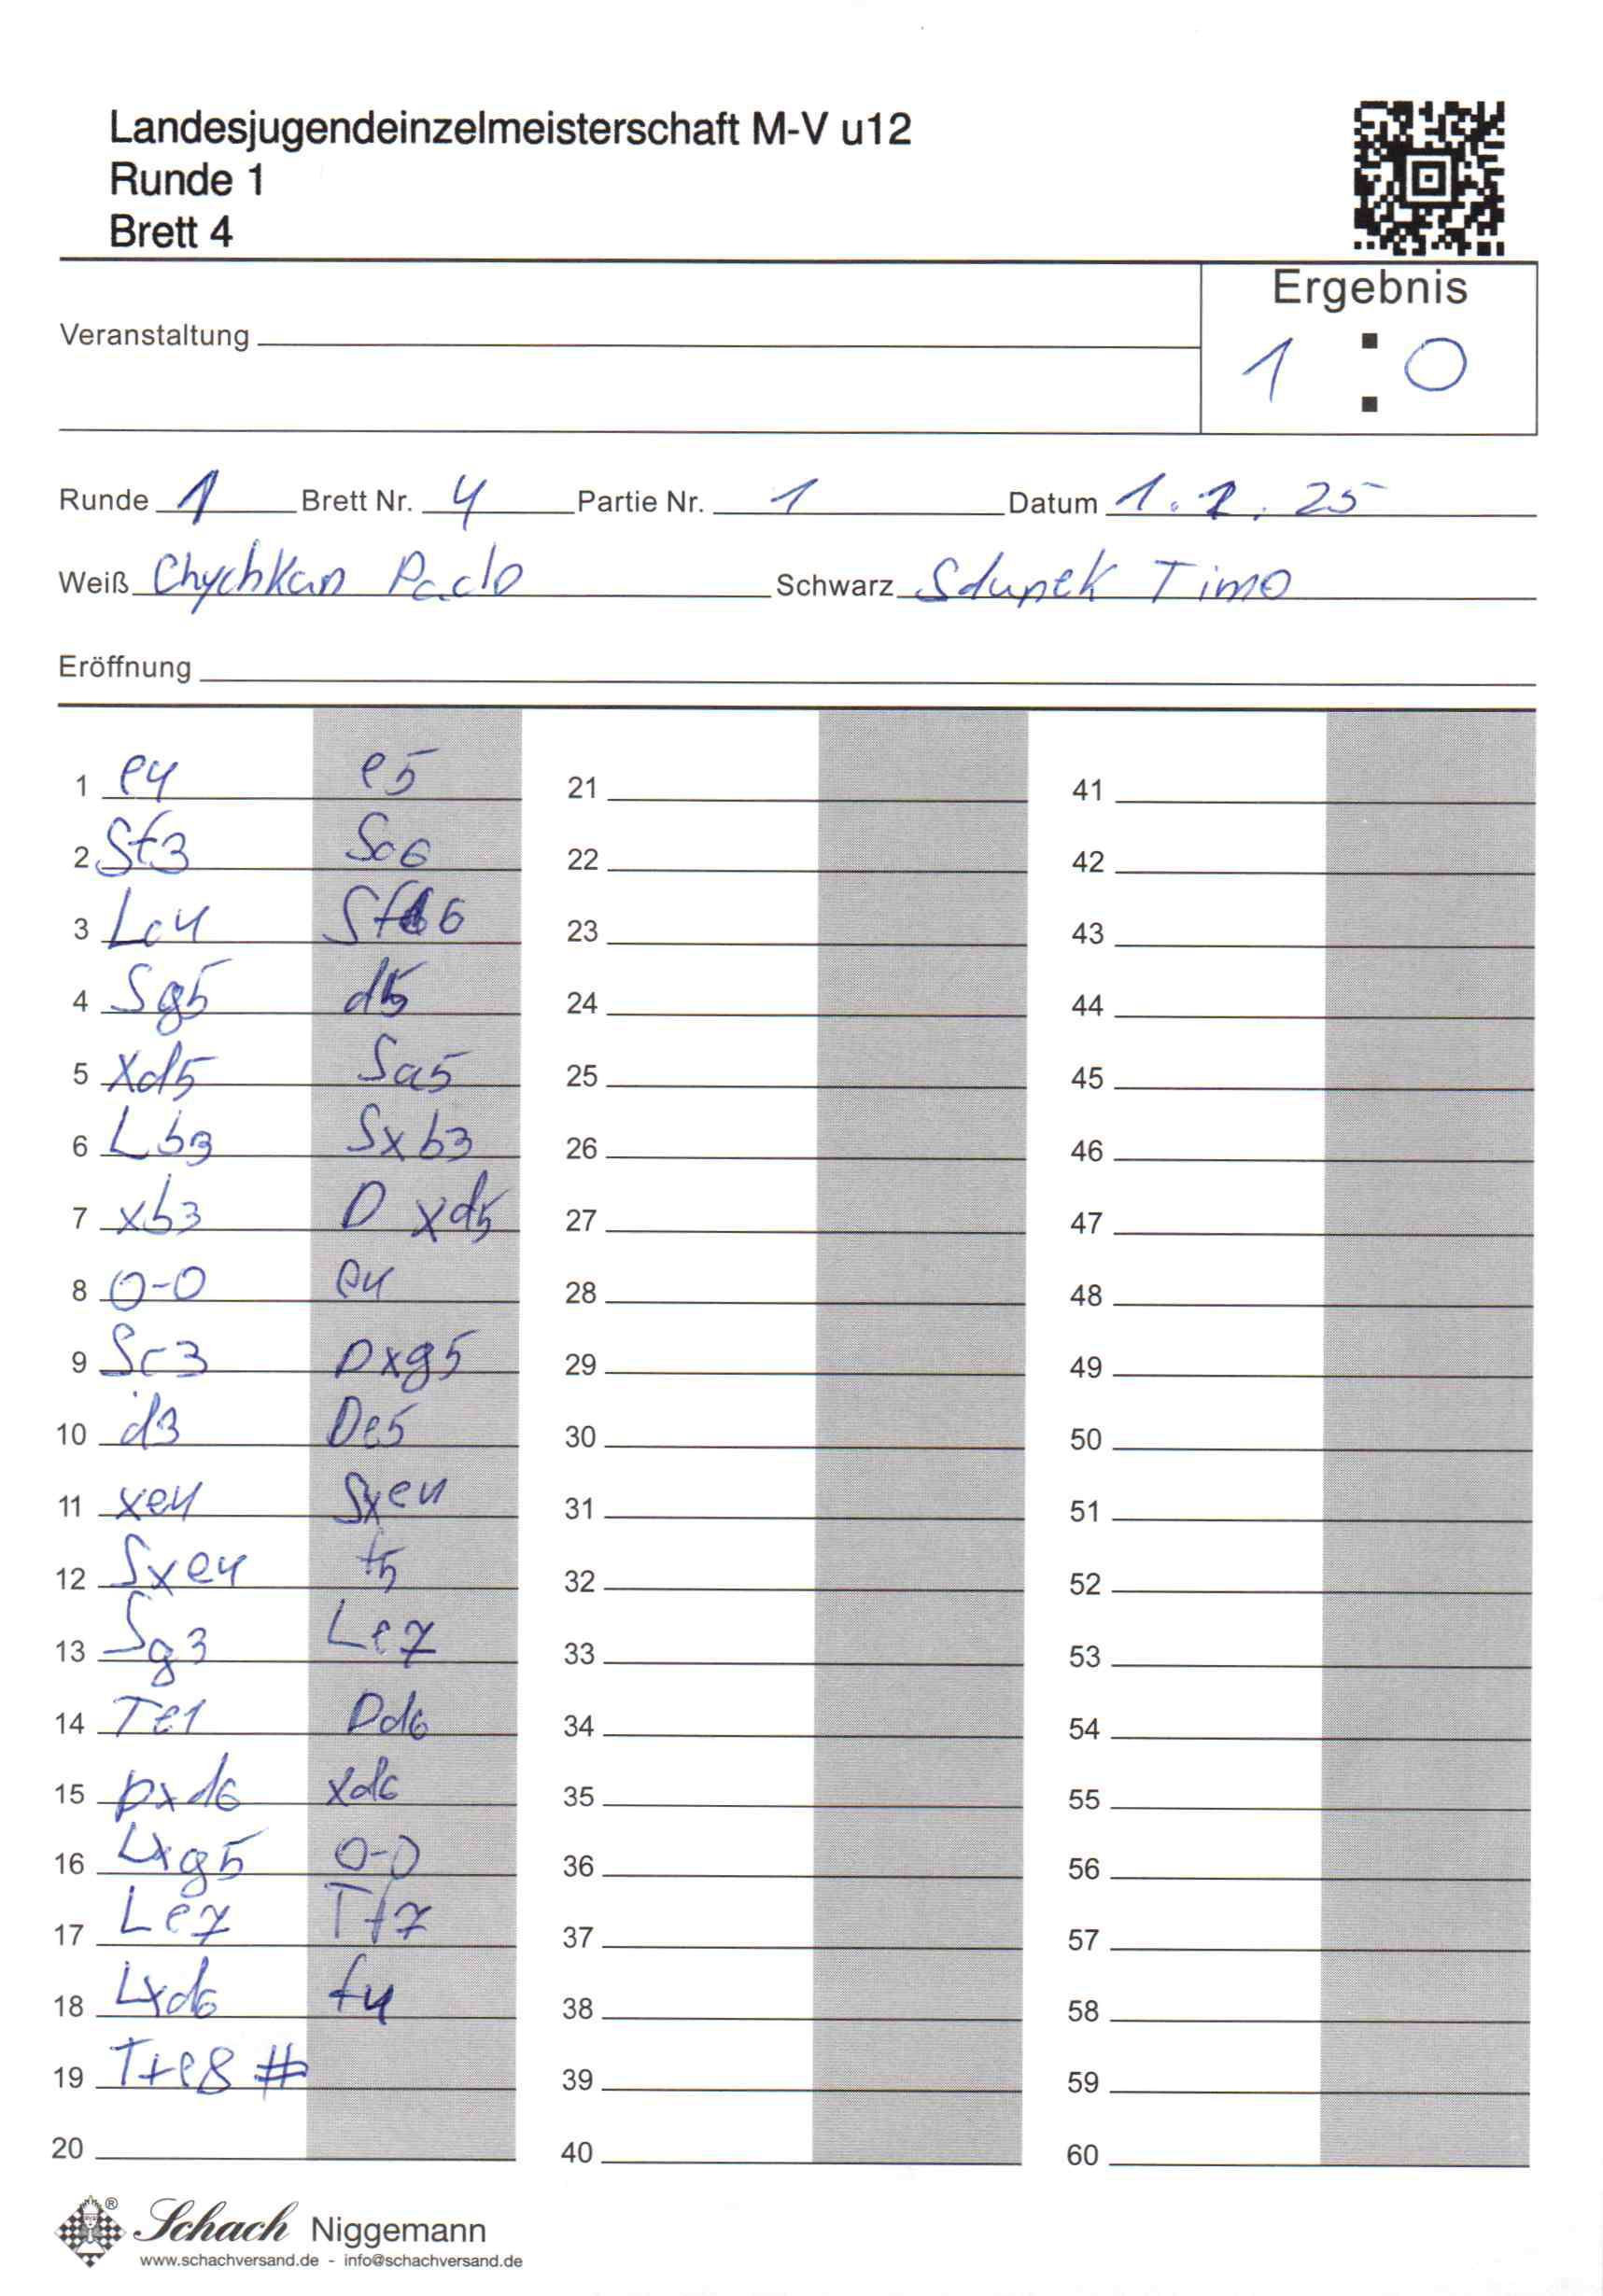 Landesjugendeinzelmeisterschaft M-V u12
Runde 1
Brett 4
Ergebnis
Veranstaltung
1 : 0
Runde 1 Brett Nr. 4 Partie Nr. 1 Datum 1.2.25
Weiß Chychkan Schwarz Sdunek Timo
Eröffnung
1 e4 e5 21 41
2 Sf3 Sc6 22 42
3 Lc4 Sf6 23 43
4 Sg5 d5 24 44
5 xd5 Sa5 25 45
6 Lb3 Sxb3 26 46
7 xb3 D xd5 27 47
8 0-0 e4 28 48
9 Sc3 Dxg5 29 49
10 d3 De5 30 50
11 xe4 Sxe4 31 51
12 Sxe4 f5 32 52
13 Sg3 Le7 33 53
14 Te1 Dd6 34 54
15 Dxd6 xd6 35 55
16 Lxg5 0-0 36 56
17 Le7 Tf7 37 57
18 Lxd6 f4 38 58
19 T+e8 # 39 59
20 40 60
® Schach Niggemann
www.schachversand.de - info@schachversand.de